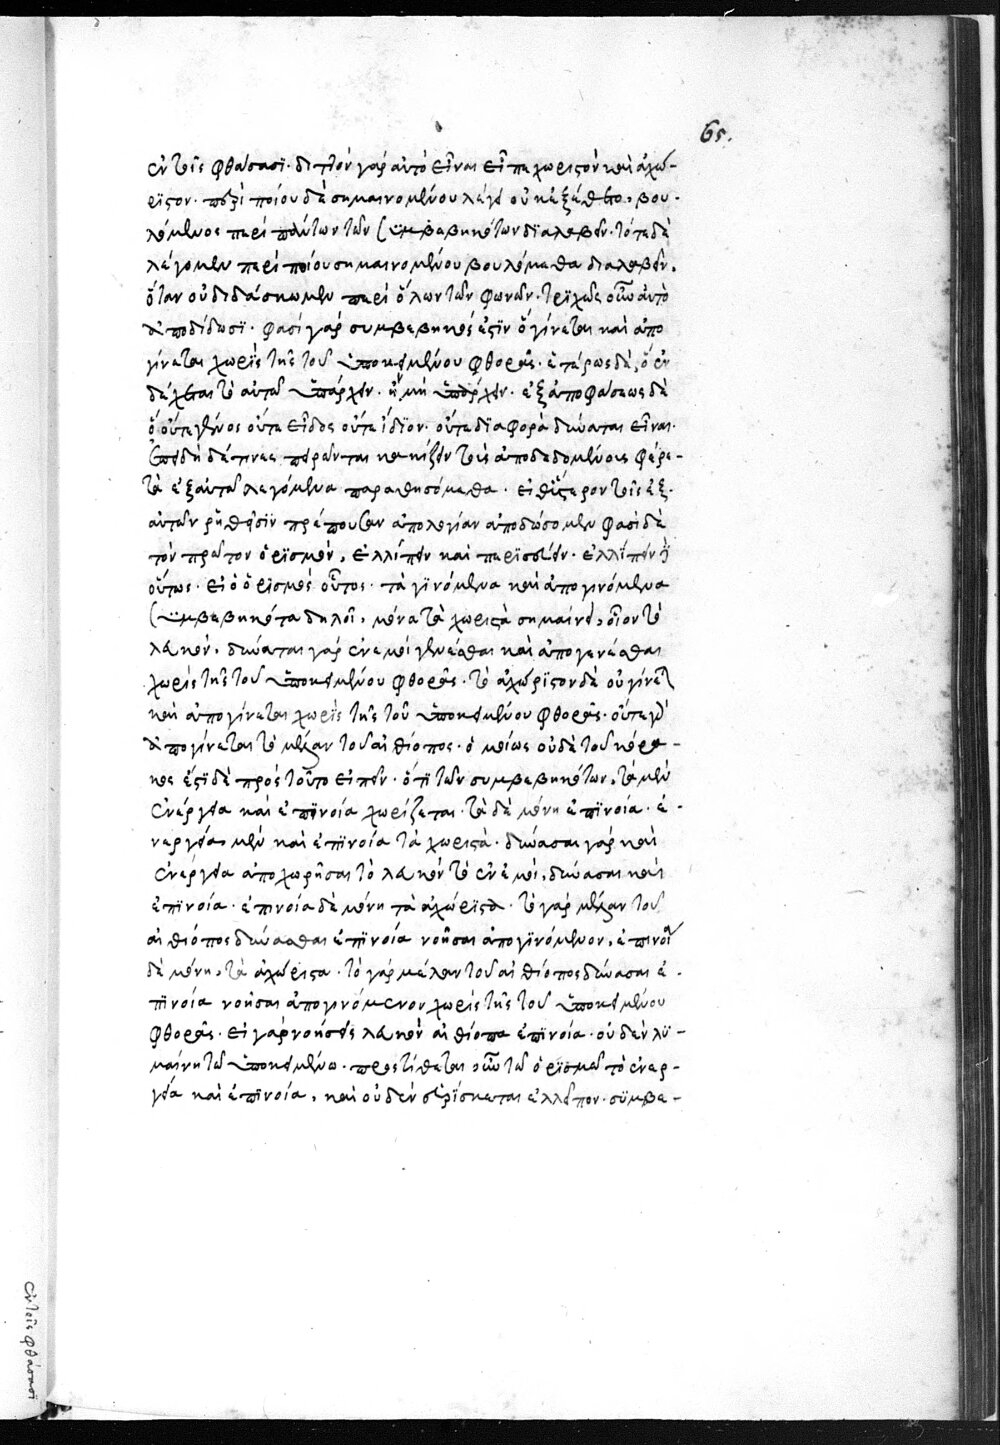 65.
ἐν τοῖς φθάσασϊ· διττὸν γὰρ αὐτὸ εἶναι εἶπε χωριστὸν καὶ ἀχώ-
ριστον· περὶ ποίου δὲ σημαινομένου λέγει οὐκ ἐξέθετο, βου-
λόμενος περὶ πάντων τῶν συμβεβηκότων διαλαβεῖν· τότε δὲ
λέγομεν περὶ ποίου σημαινομένου βουλόμεθα διαλαβεῖν,
ὅταν οὐ διδάσκωμεν περὶ ὅλων τῶν φωνῶν· τριχῶς οὖν αὐτὸ
ἀποδίδωσϊ· φασὶ γὰρ συμβεβηκός ἐστϊν ὃ γίνεται καὶ ἀπο
γίνεται χωρὶς τῆς τοῦ ὑποκειμένου φθορᾶς· ἑτέρως δὲ, ὃ ἐν
δέχεται τῷ αὐτῷ ὑπάρχειν· ἢ μὴ ὑπάρχειν· ἐξ ἀποφάσεως δὲ
ὃ οὔτε γένος οὔτε εἶδος οὔτε ἴδϊον· οὔτε διαφορὰ δύναται εἶναι·
ἐπειδὴ δέ τινες πειρῶνται κακίζειν τοὺς ἀποδεδομένους φέρε-
τὰ ἐξ αὐτῶν λεγόμενα παραθησόμεθα· εἶθ' ὕστερον τοῖς ἐξ-
αὐτῶν ῥηθεῖσϊν πρέπουσαν ἀπολογίαν ἀποδώσομεν φασὶ δὲ
τὸν πρῶτον ὁρϊσμὸν, ἐλλίπειν καὶ περισσεύειν· ἐλλίπειν ἢ
οὕτως· εἰ ὁ ὁρισμὸς οὗτος· τὰ γϊνόμενα καὶ ἀπογινόμενα
συμβεβηκότα δηλοῖ, μόνα τὰ χωριστὰ σημαίνει, οἷον τὸ
λευκὸν, δύναται γὰρ ἐν ἐμοὶ γενέσθαι καὶ ἀπογενέσθαι
χωρὶς τῆς τοῦ ὑποκειμένου φθορᾶς· τὸ ἀχώριστον δὲ οὐ γίνεται
καὶ ἀπογίνεται χωρὶς τῆς τοῦ ὑποκειμένου φθορᾶς· οὔτε γὰρ
ἀπογίνεται τὸ μέλαν τοῦ αἰθίοπος· ὁμοίως οὐδὲ τοῦ κόρα-
κος ἔστϊ δὲ πρὸς τοῦτο εἰπεῖν· ὅτϊ τῶν συμβεβηκότων, τὰ μὲν
ἐνέργεία καὶ ἐπϊνοία χωρίζεται· τὰ δὲ μόνη ἐπϊνοία· ἐ-
νεργεία μὲν καὶ ἐπϊνοία τὰ χωριστὰ· δύνασαι γὰρ καὶ
ἐνέργεία ἀποχωρῆσαι τὸ λευκὸν τὸ ἐν ἐμοὶ, δύνασαι καὶ
ἐπϊνοία· ἐπινοία δὲ μόνη τὰ ἀχώρϊστα· τὸ γὰρ μέλαν τοῦ
αἰθίοπος δύνασθαι ἐπϊνοία νοῆσαι ἀπογϊνόμενον, ἐπινοία
δὲ μόνη, τὰ ἀχώριστα· τὸ γὰρ μέλαν τοῦ αἰθίοπος δύνασαι ἐ-
πϊνοία νοῆσαι ἀπογινόμενον χωρὶς τῆς τοῦ ὑποκειμένου
φθορᾶς· εἰ γὰρ νοήσεις λευκὸν αἰθίοπα ἐπϊνοία· οὐδὲν λυ-
μαίνη τῷ ὑποκειμένω· προστίθεται οὖν τῷ ὁρϊσμῷ τὸ ἐνερ-
γεία καὶ ἐπϊνοία, καὶ οὐδὲν εὑρίσκεται ἐλλεῖπον· συμβε-
ἐν τοῖς φθάσασϊ